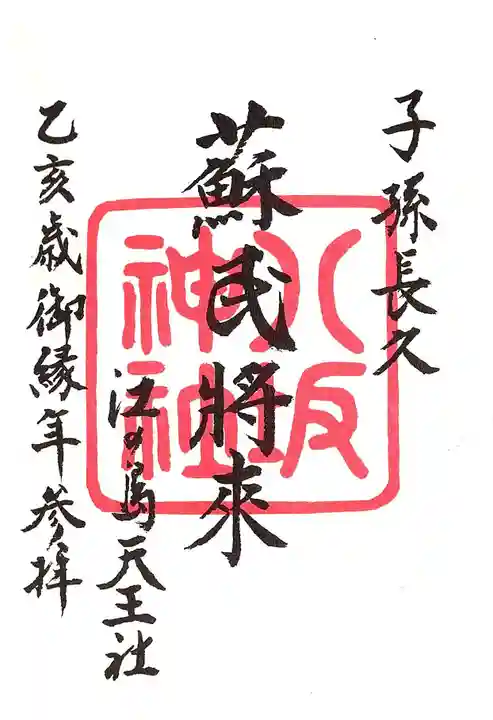 子孫長久
蘇民將來
八坂神社
江の島天王社
乙亥歳御縁年参拝